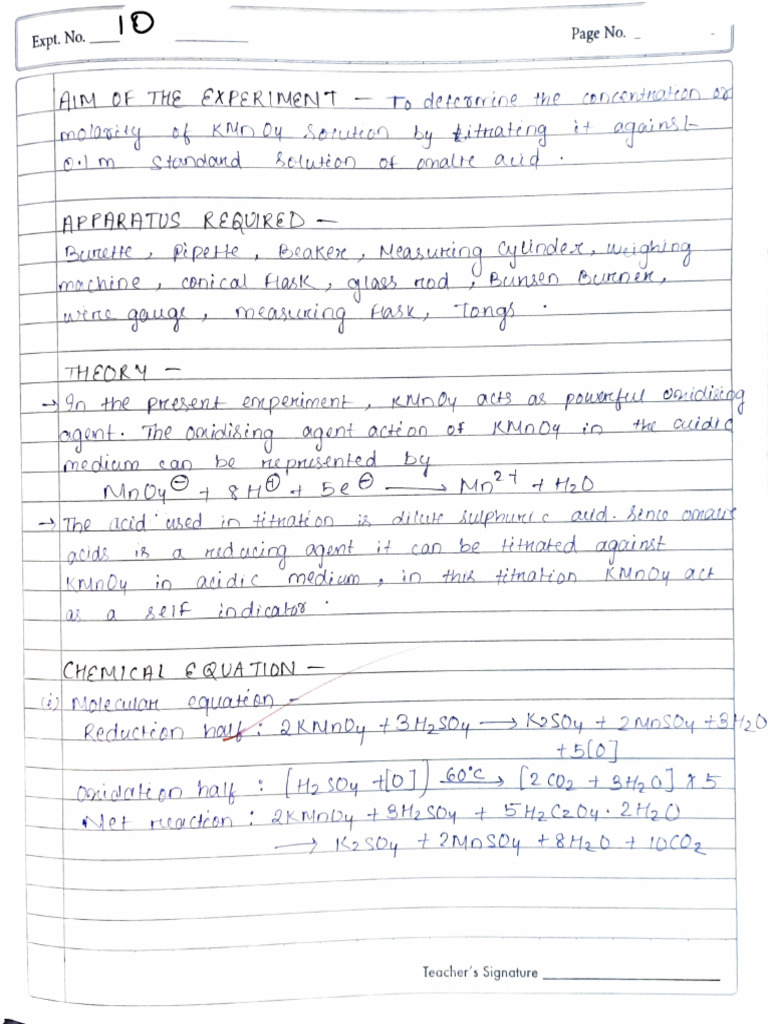 Expt. No. 10
Page No.
AIM OF THE EXPERIMENT – To determine the concentration or
molarity of KMnO4 solution by titrating it against
0.1m standard solution of oxalic acid.
APPARATUS REQUIRED –
Burette, Pipette, Beaker, Measuring Cylinder, weighing
machine, conical flask, glass rod, Bunsen Burner,
wire gauge, measuring flask, Tongs.
THEORY –
→ In the present experiment, KMnO4 acts as powerful oxidising
agent. The oxidising agent action of KMnO4 in the acidic
medium can be represented by
MnO4⊖ + 8H⊕ + 5e⊖ ⟶ Mn2+ + H2O
→ The acid used in titration is dilute sulphuric acid. Since oxalic
acids is a reducing agent it can be titrated against
KMnO4 in acidic medium, in this titration KMnO4 act
as a self indicator.
CHEMICAL EQUATION –
(i) Molecular equation –
Reduction half : 2KMnO4 + 3H2SO4 ⟶ K2SO4 + 2MnSO4 + 3H2O
+ 5[O]
Oxidation half : [H2SO4 + [O]] 60°C ⟶ [2CO2 + 3H2O] × 5
Net reaction : 2KMnO4 + 3H2SO4 + 5H2C2O4 · 2H2O
⟶ K2SO4 + 2MnSO4 + 8H2O + 10CO2
Teacher's Signature